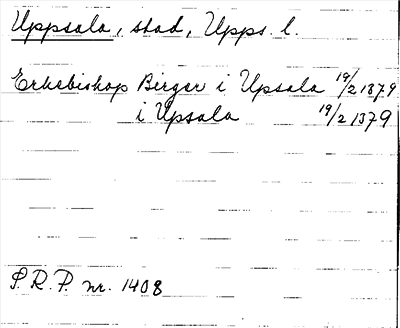 Uppsala, stad, Upps. l.
Erkebiskop Birger i Upsala 19/2 1379
i Upsala 19/2 1379
S.R.P. nr. 1408